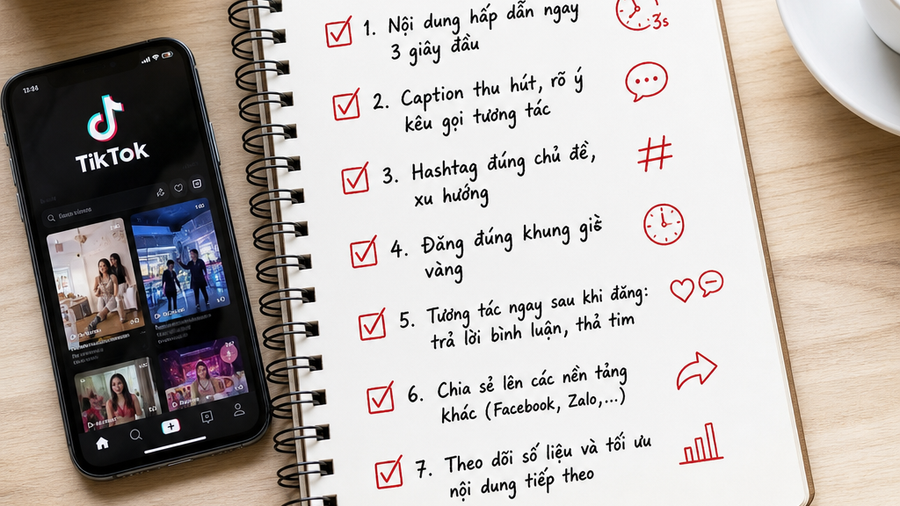 TikTok
1. Nội dung hấp dẫn ngay
3 giây đầu
3s
2. Caption thu hút, rõ ý
kêu gọi tương tác
3. Hashtag đúng chủ đề,
xu hướng
#
4. Đăng đúng khung giờ
vàng
5. Tương tác ngay sau khi đăng:
trả lời bình luận, thả tim
6. Chia sẻ lên các nền tảng
khác (Facebook, Zalo,...)
7. Theo dõi số liệu và tối ưu
nội dung tiếp theo